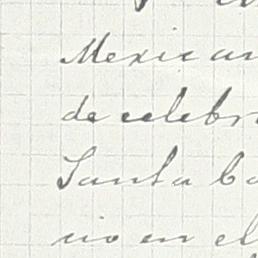 Mexican
de celebr
Santa Ca
rio en el